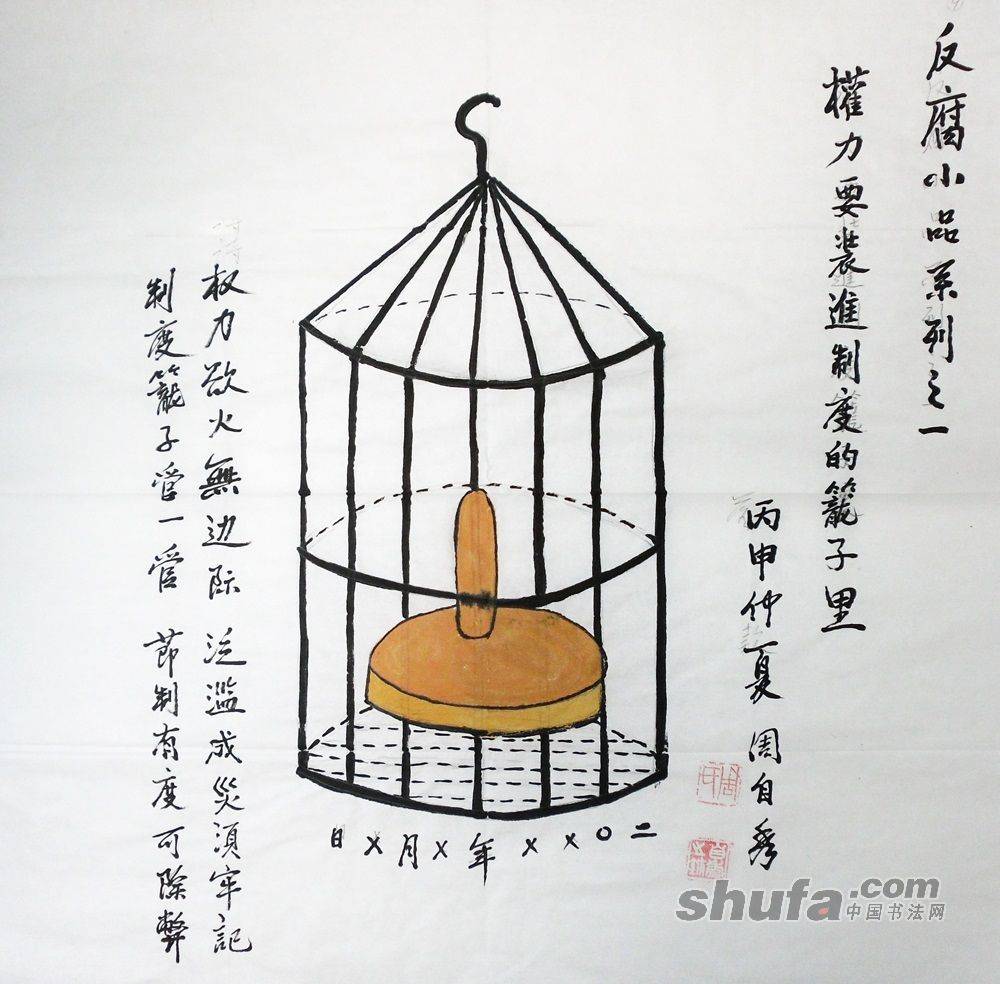 反腐小品系列之一
權力要装進制度的籠子里
丙申仲夏 周自秀
权力欲火無边际 泛滥成災須牢記
制度籠子管一管 節制有度可除弊
二〇××年×月×日
shufa.com
中国书法网